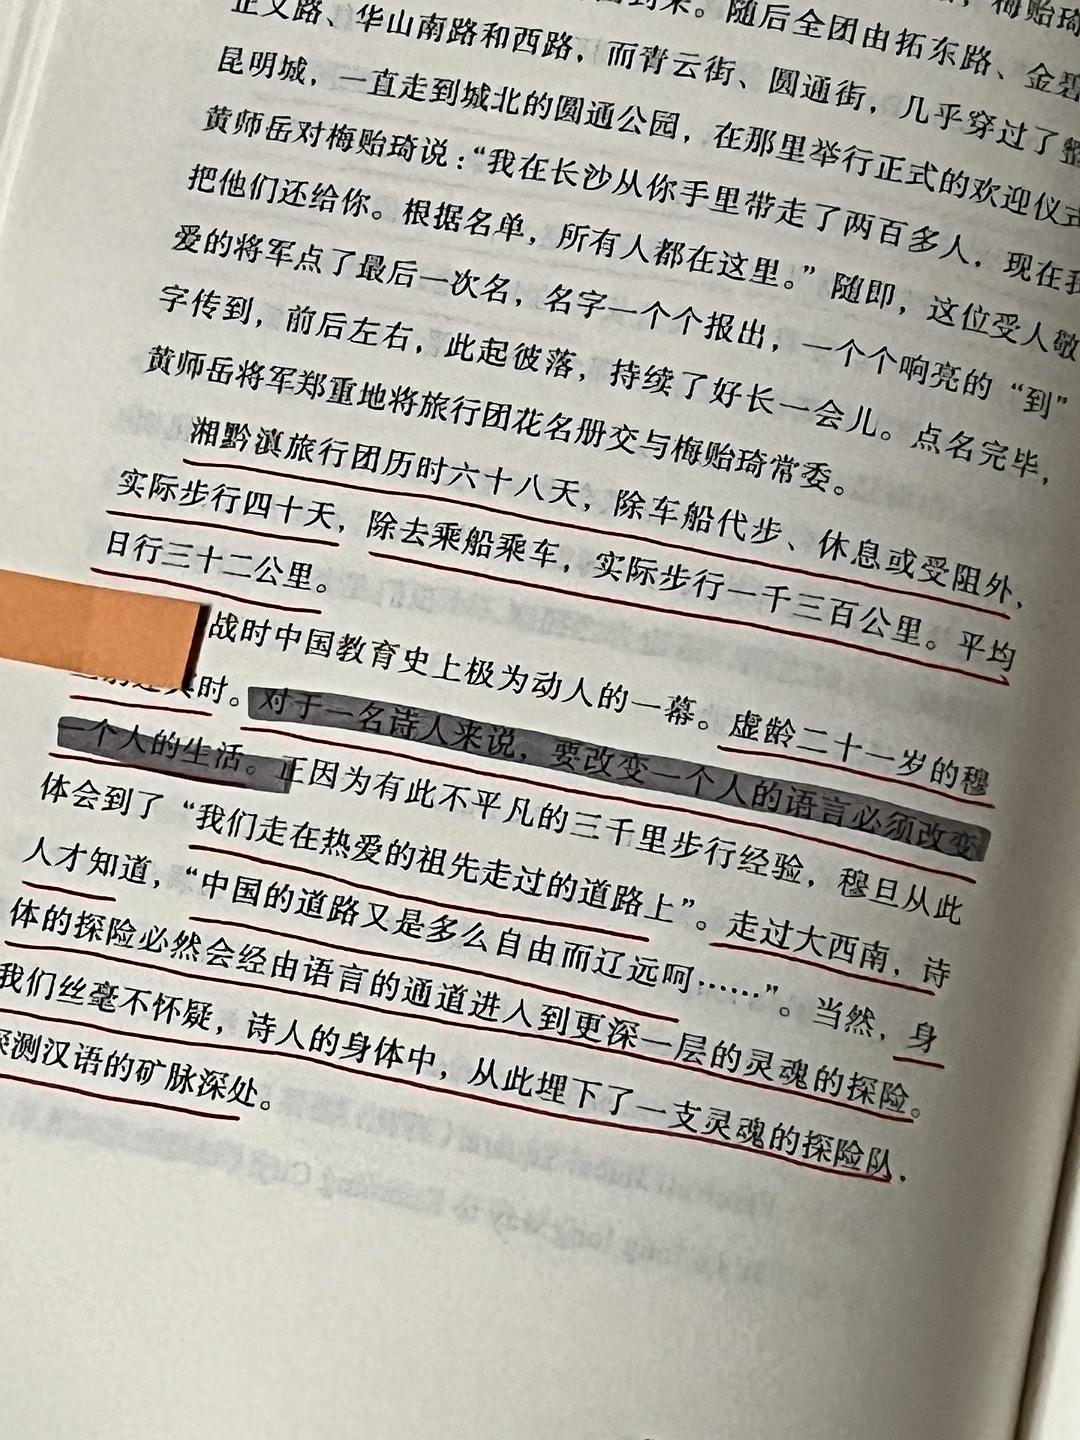 到来。随后全团由拓东路、金碧
正义路、华山南路和西路，而青云街、圆通街，几乎穿过了整
昆明城，一直走到城北的圆通公园，在那里举行正式的欢迎仪式
黄师岳对梅贻琦说：“我在长沙从你手里带走了两百多人，现在我
把他们还给你。根据名单，所有人都在这里。”随即，这位受人敬
爱的将军点了最后一次名，名字一个个报出，一个个响亮的“到”
字传到，前后左右，此起彼落，持续了好长一会儿。点名完毕，
黄师岳将军郑重地将旅行团花名册交与梅贻琦常委。
湘黔滇旅行团历时六十八天，除车船代步、休息或受阻外，
实际步行四十天，除去乘船乘车，实际步行一千三百公里。平均
日行三十二公里。
战时中国教育史上极为动人的一幕。虚龄二十一岁的穆
时。对于一名诗人来说，要改变一个人的语言必须改变
一个人的生活。正因为有此不平凡的三千里步行经验，穆旦从此
体会到了“我们走在热爱的祖先走过的道路上”。走过大西南，诗
人才知道，“中国的道路又是多么自由而辽远呵……”。当然，身
体的探险必然会经由语言的通道进入到更深一层的灵魂的探险。
我们丝毫不怀疑，诗人的身体中，从此埋下了一支灵魂的探险队，
探测汉语的矿脉深处。